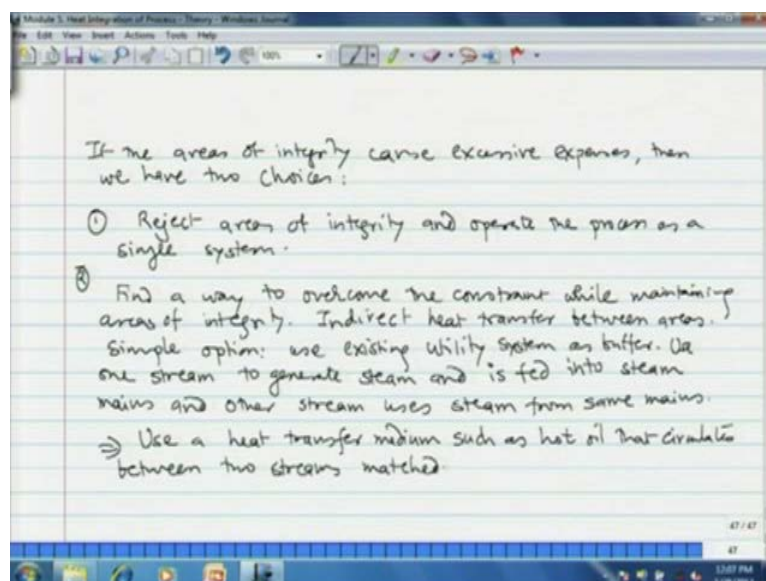 Module 5. Heat Integration of Process - Theory - Windows Journal
File Edit View Insert Actions Tools Help
100%
If the areas of integrity cause excessive expenses, then
we have two choices:
① Reject areas of integrity and operate the process as a
single system.
② Find a way to overcome the constraint while maintaining
areas of integrity. Indirect heat transfer between areas.
Simple option: use existing utility system as buffer. Ua
one stream to generate steam and is fed into steam
mains and other stream uses steam from same mains.
⇒ Use a heat transfer medium such as hot oil that circulates
between two streams matched.
47 / 47
47
12:07 PM